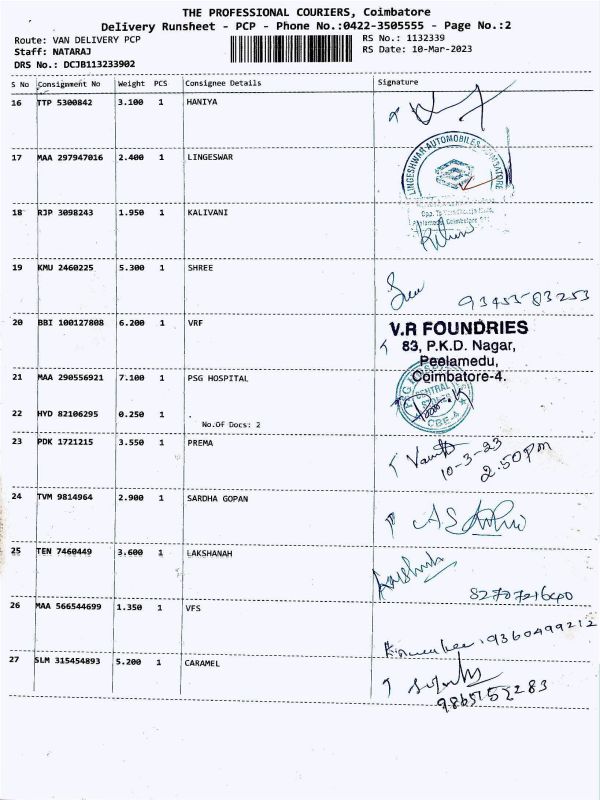 THE PROFESSIONAL COURIERS, Coimbatore
Delivery Runsheet - PCP - Phone No.:0422-3505555 - Page No.:2
Route: VAN DELIVERY PCP RS No.: 1132339
Staff: NATARAJ RS Date: 10-Mar-2023
DRS No.: DCJB113233902
S No Consignment No Weight PCS Consignee Details Signature
16 TTP 5300842 3.100 1 HANIYA
LINGESHWAR AUTOMOBILES COIMBATORE
17 MAA 297947016 2.400 1 LINGESWAR
18 RJP 3098243 1.950 1 KALIVANI
19 KMU 2460225 5.300 1 SHREE
93455 83253
20 BBI 100127808 6.200 1 VRF
V.R FOUNDRIES
83, P.K.D. Nagar,
Peelamedu,
Coimbatore-4.
21 MAA 290556921 7.100 1 PSG HOSPITAL
22 HYD 82106295 0.250 1
No.Of Docs: 2
CBE-4
23 PDK 1721215 3.550 1 PREMA
10-3-23
2.50pm
24 TVM 9814964 2.900 1 SARDHA GOPAN
25 TEN 7460449 3.600 1 LAKSHANAH
26 MAA 566544699 1.350 1 VFS
9360499212
27 SLM 315454893 5.200 1 CARAMEL